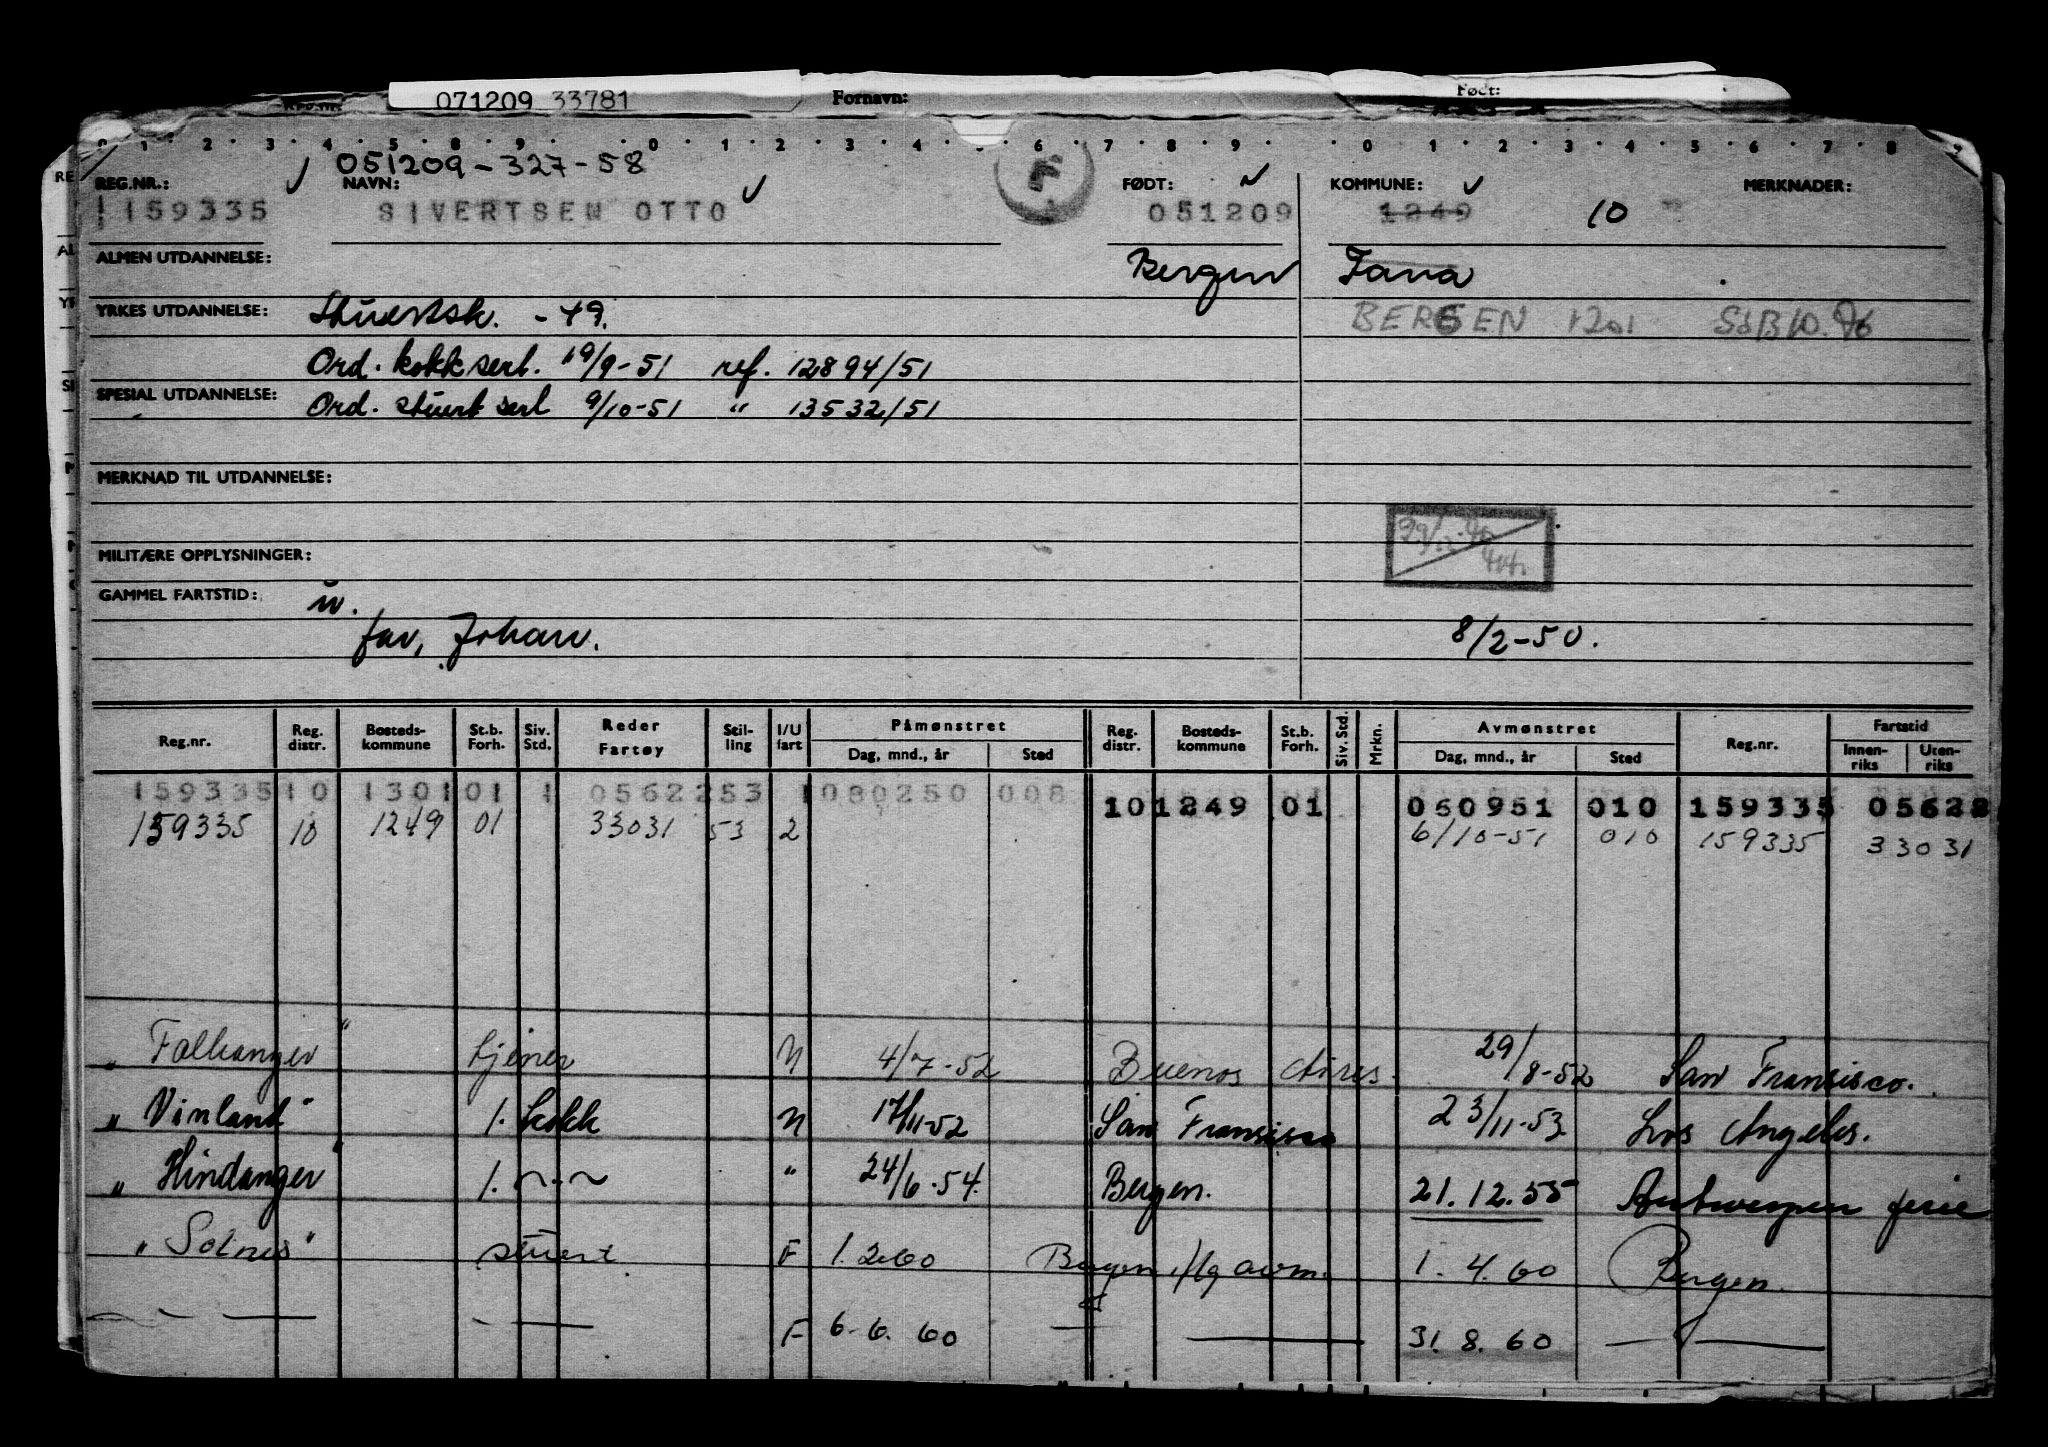 071209 33781 Fornavn: Født:
0 1 2 3 4 5 8 9 0 1 2 3 4 6 7 8 9 0 1 2 3 4 5 6 7 8 9
051209-327-58 F
REG.NR.: NAVN: FØDT: KOMMUNE: MERKNADER:
159335 SIVERTSEN OTTO 051209 1249 10
ALMEN UTDANNELSE: Bergen Fana
YRKES UTDANNELSE: Stuertsk. -49. BERGEN 1201
Ord. kokksert. 19/9-51 ref. 12894/51
SPESIAL UTDANNELSE: Ord. stuert sert 9/10-51 " 13532/51
MERKNAD TIL UTDANNELSE:
MILITÆRE OPPLYSNINGER:
GAMMEL FARTSTID: u.
far, Johan. 8/2-50.
Reg.nr. Reg. distr. Bosteds-kommune St.b. Forh. Siv. Std. Reder Fartøy Stil-ling I/U fart Påmønstret Dag, mnd., år Sted Reg. distr. Bosteds-kommune St.b. Forh. Siv. Std. Mrkn. Avmønstret Dag, mnd., år Sted Reg.nr. Fartstid Innen-riks Uten-riks
159335 10 1301 01 1 0562253 1 080250 008 10 1249 01 060951 010 159335 05622
159335 10 1249 01 33031 53 2 6/10-51 010 159335 33031
" Falkanger " tjener N 4/7-52 Buenos Aires. 29/8-52 San Fransisco.
" Vinland " 1. kokk N 17/11-52 San Fransisco 23/11-53 Los Angeles.
" Hindanger " 1. ~·~ " 24/6-54. Bergen. 21.12.55 Antwerpen ferie
" Solnes " stuert F 1.2.60 Bergen 1.4.60 Bergen.
— — — F 6.6.60 — — 31.8.60 — —